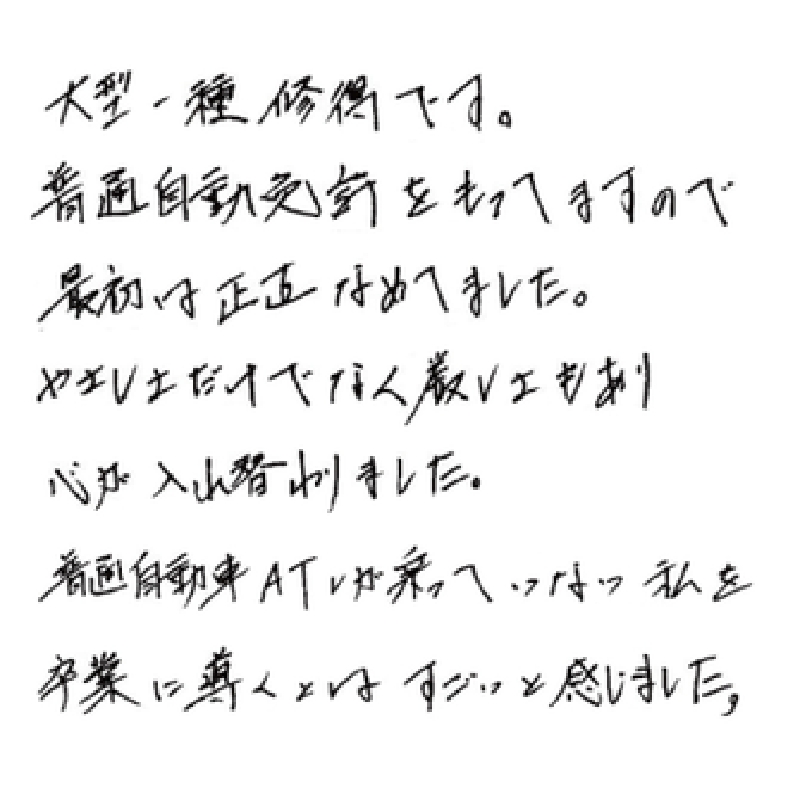 大型一種修得です。
普通自動免許をもってますので
最初は正直なめてました。
やさしさだけでなく厳しさもあり
心が入れ替わりました。
普通自動車ATしか乗っていない私を
卒業に導くとはすごいと感じました。